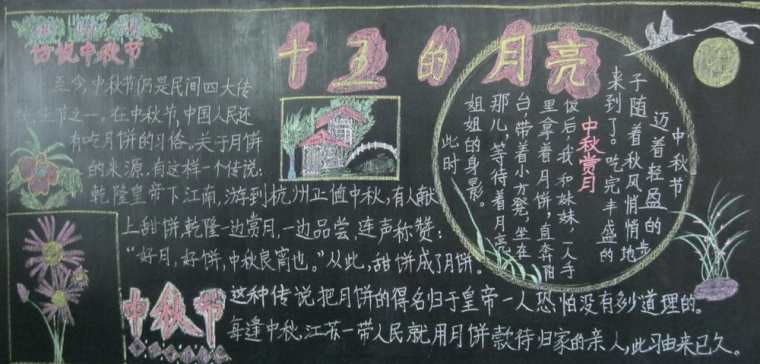 十五的月亮
话说中秋节
至今,中秋节仍是民间四大传
统佳节之一。在中秋节,中国人民还
有吃月饼的习俗。关于月饼
的来源,有这样一个传说:
乾隆皇帝下江南,游到杭州正值中秋,有人献
上甜饼,乾隆一边赏月,一边品尝,连声称赞:
“好月,好饼,中秋良宵也。”从此,甜饼成了月饼。
这种传说把月饼的得名归于皇帝一人恐怕没有多少道理的。
每逢中秋,江苏一带人民就用月饼款待归家的亲人,此习由来已久。
中秋节
中秋赏月
中秋节
迈着轻盈的步
子随着秋风悄悄地
来到了。吃完丰盛的
饭后,我和妹妹,一人手
里拿着月饼,直奔阳
台,带着小方凳,坐在
那儿,等待着月亮
姐姐的身影。
此时